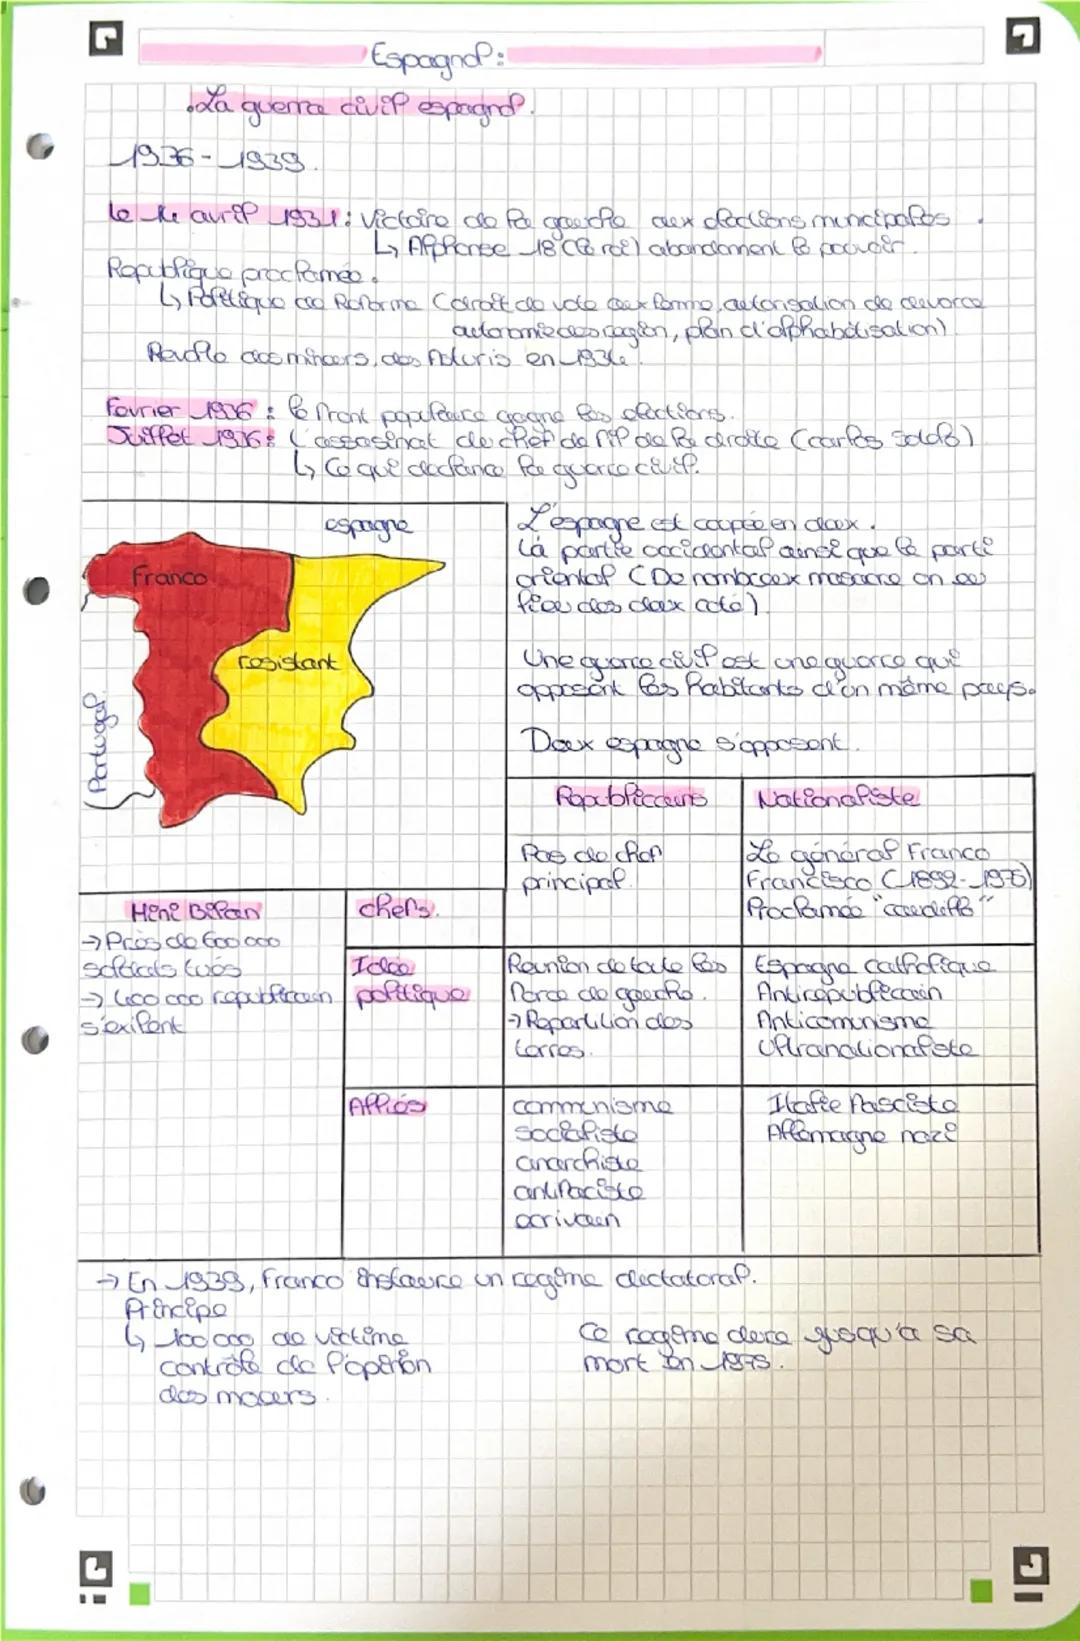 Espagnol:
.La guerra civil espagnol.
1936-1939.
le 14 avril 1931: Victoire de la gauche aux élections municipales.
↳ Alphonse 18 (le roi) abandonnent le pouvoir.
République proclamée.
↳ Politique de Reforme (droit de vote aux femme, autorisation de divorce
autonomie des region, plan d'alphabétisation)
Revolte des mineers, des Asturis en 1934.
Fevrier 1936: le front populaire gagne les élections.
Juillet 1936: L'assasinat de chef de file de la droite (carlos Sotelo)
↳ Ce qui declanca la guerre civil.
espagne
Franco
resistant
Portugal.
L'espagne est coupée en deux.
La partie occidental ainsi que la partie
oriental (De nombreux massacre on eu
lieu des deux coté)
Une guerre civil est une guerre qui
opposent les habitants d'un même pays.
Deux espagne s'opposent.
Republicains
Nationaliste
Pas de chef
principal.
Le général Franco
Francisco (1892-1975)
Proclamée "caudillo"
Mini Bilan
chefs.
→ Près de 600 000
soldats tués
→ 400 000 republicain
s'exilent
Idée
politique
Reunion de toute les
force de gauche.
→ Repartition des
terres.
Espagne catholique
Antirepublicain
Anticomunisme
Ultranationaliste
Alliés
communisme
socialiste
anarchiste
antifaciste
ecrivain
Italie fasciste
Allemagne nazi
→ En 1939, Franco instaure un regime dictatoral.
Principe
↳ 100 000 de victime
contrôle de l'opinion
des moeurs.
Ce regime dura jusqu'a sa
mort en 1975.